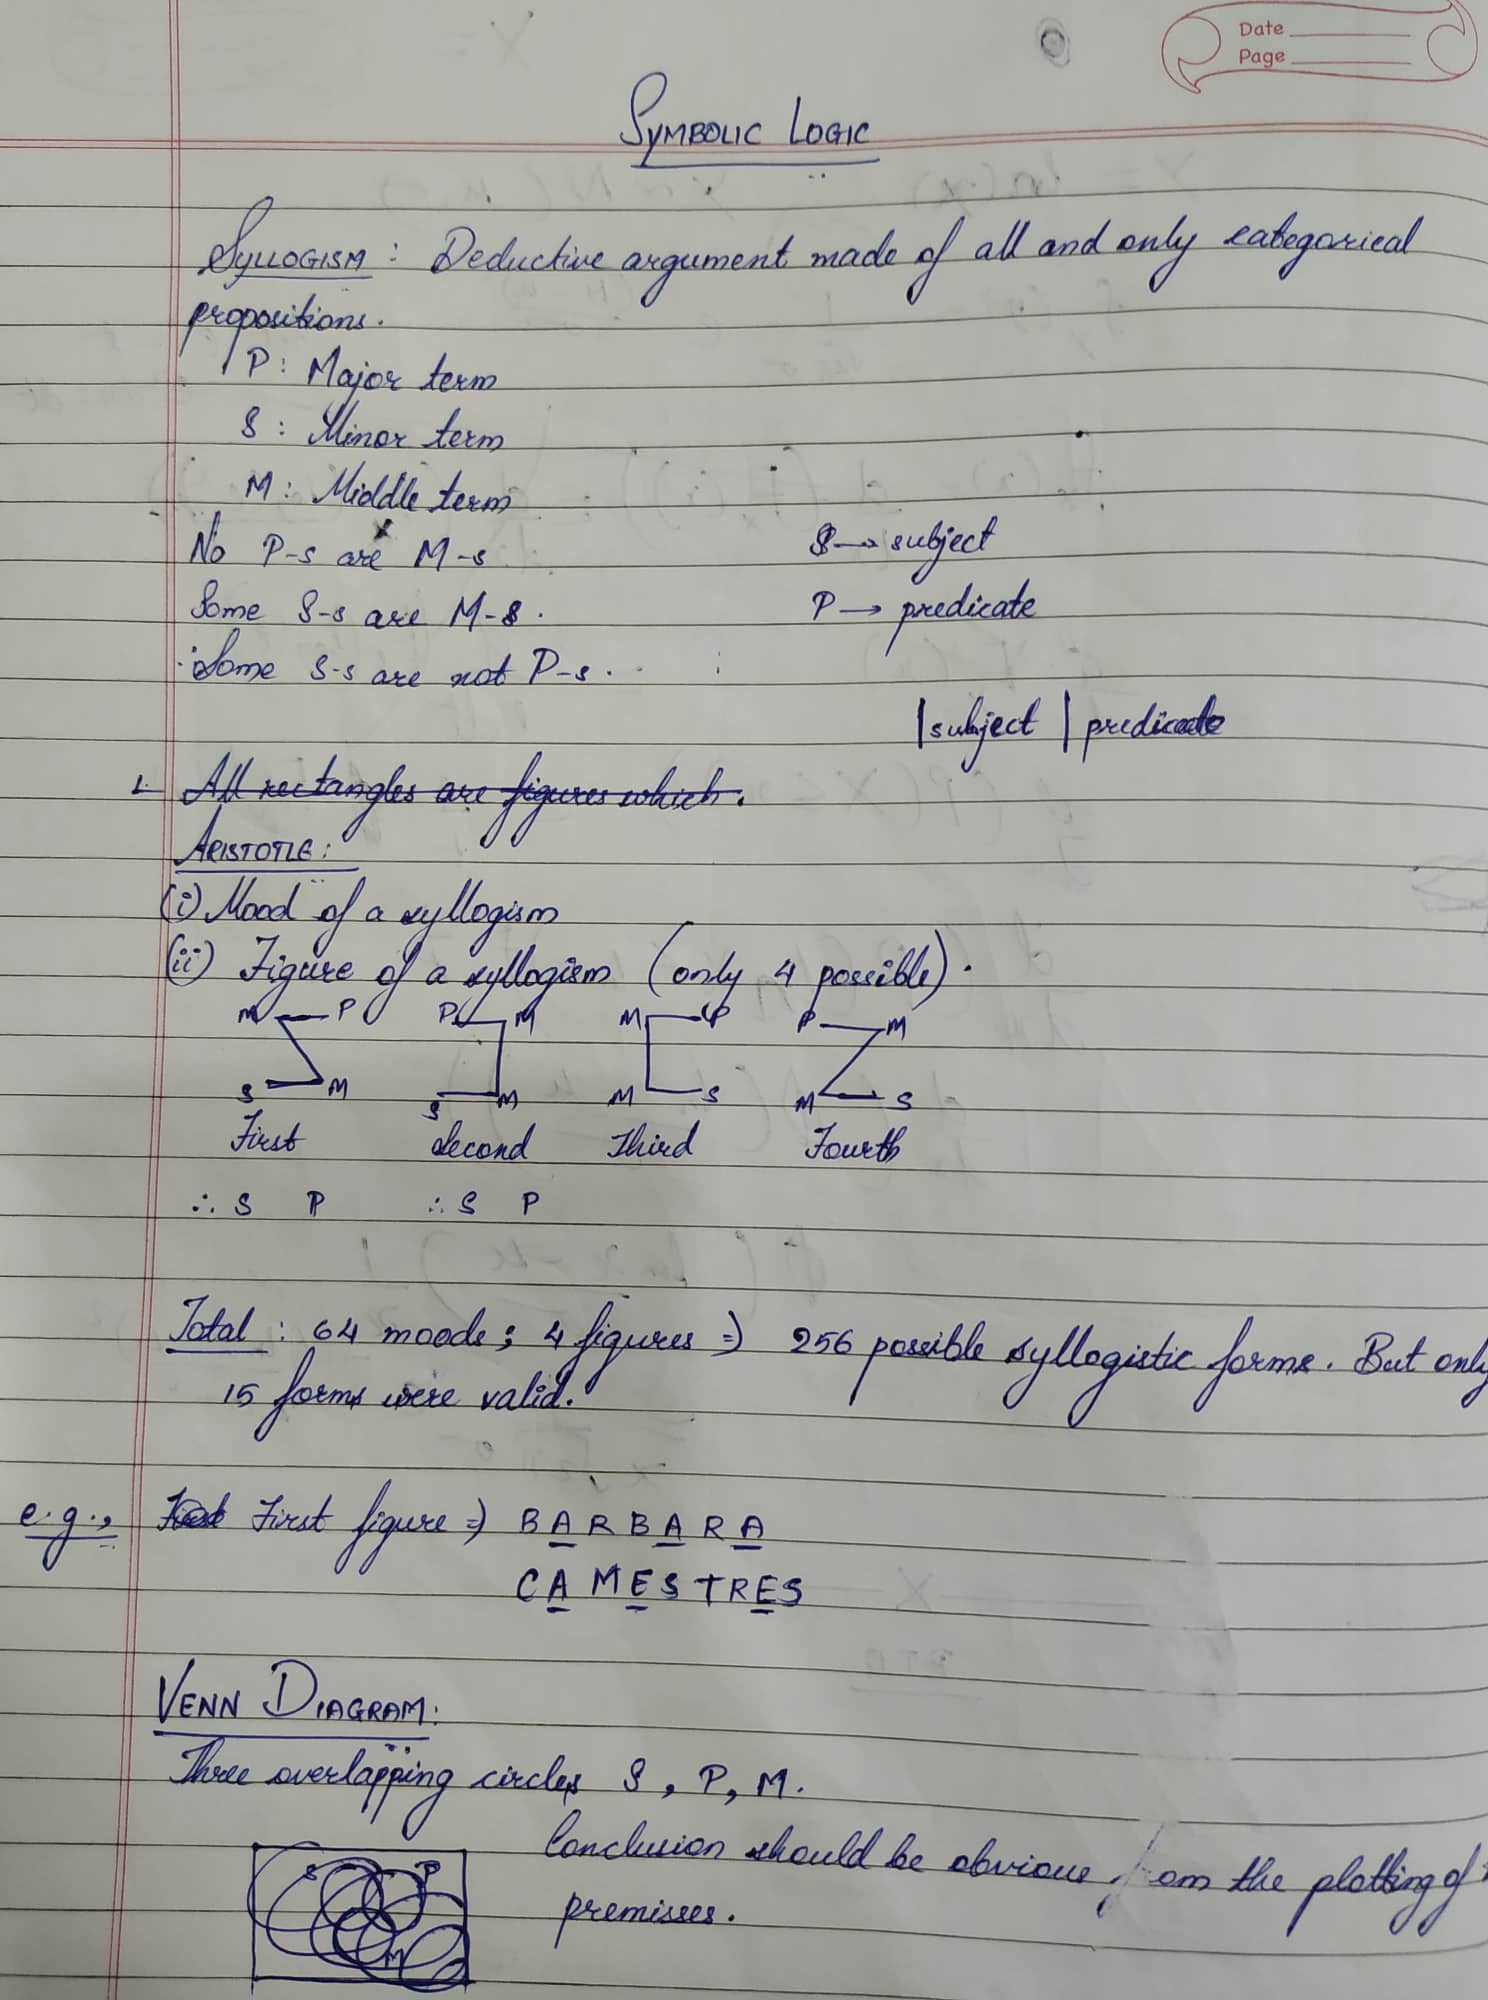 Date
Page
SYMBOLIC LOGIC
SYLLOGISM : Deductive argument made of all and only categorical
propositions.
P : Major term
S : Minor term
M : Middle term
No P-s are M-s
S → subject
Some S-s are M-s.
P → predicate
∴ Some S-s are not P-s.
| subject | predicate
1. All rectangles are figures which.
ARISTOTLE :
(i) Mood of a syllogism
(ii) Figure of a syllogism (only 4 possible).
M P P M M P P M
S M S M M S M S
First Second Third Fourth
∴ S P ∴ S P
Total : 64 moods ; 4 figures ⇒ 256 possible syllogistic forms. But only
15 forms were valid.
e.g., First figure ⇒ BARBARA
CAMESTRES
VENN DIAGRAM :
Three overlapping circles S, P, M.
S P
M
Conclusion should be obvious from the plotting of
premisses.